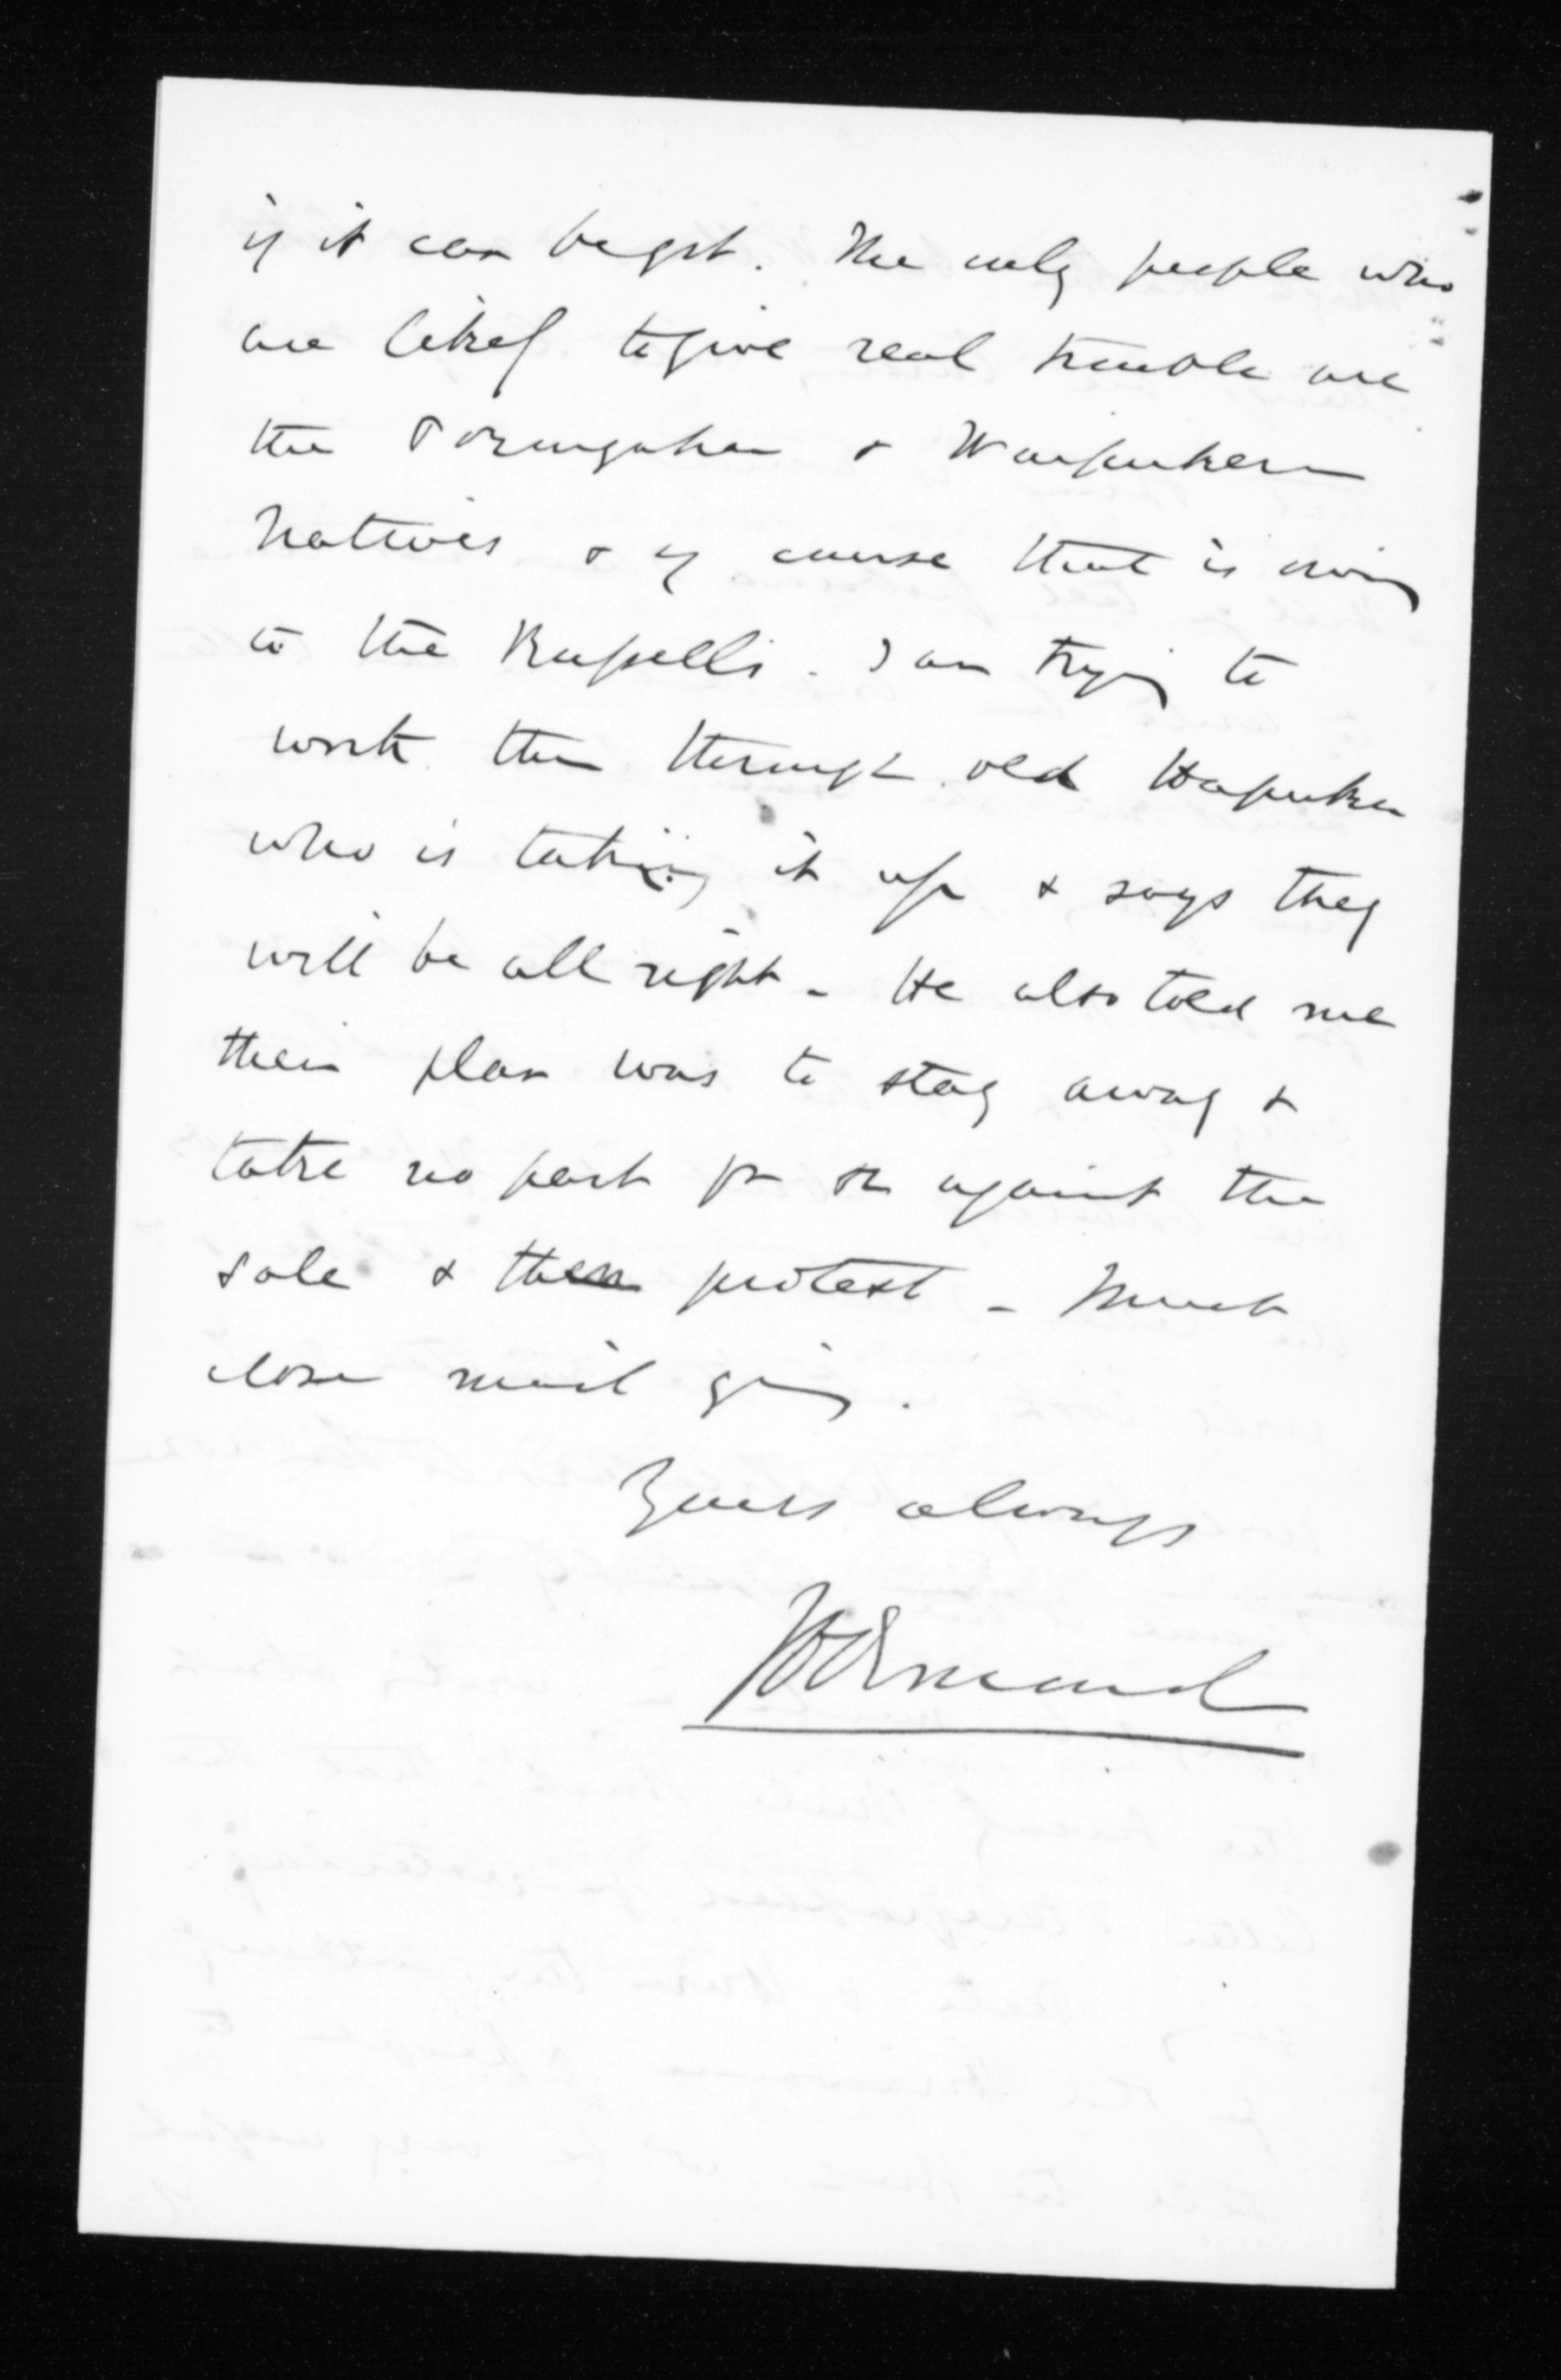 if it can be got. The only people who
are likely to give real trouble are
the Porangahau & Waipukurau
Natives & of course that is owing
to the Russells. I am trying to
work them through old Hapuku
who is taking it up & says they
will be all right - He also told me
their plan was to stay away &
take no part for or against the
sale & then protest - Must
close mail going.
Yours always
JD Ormond